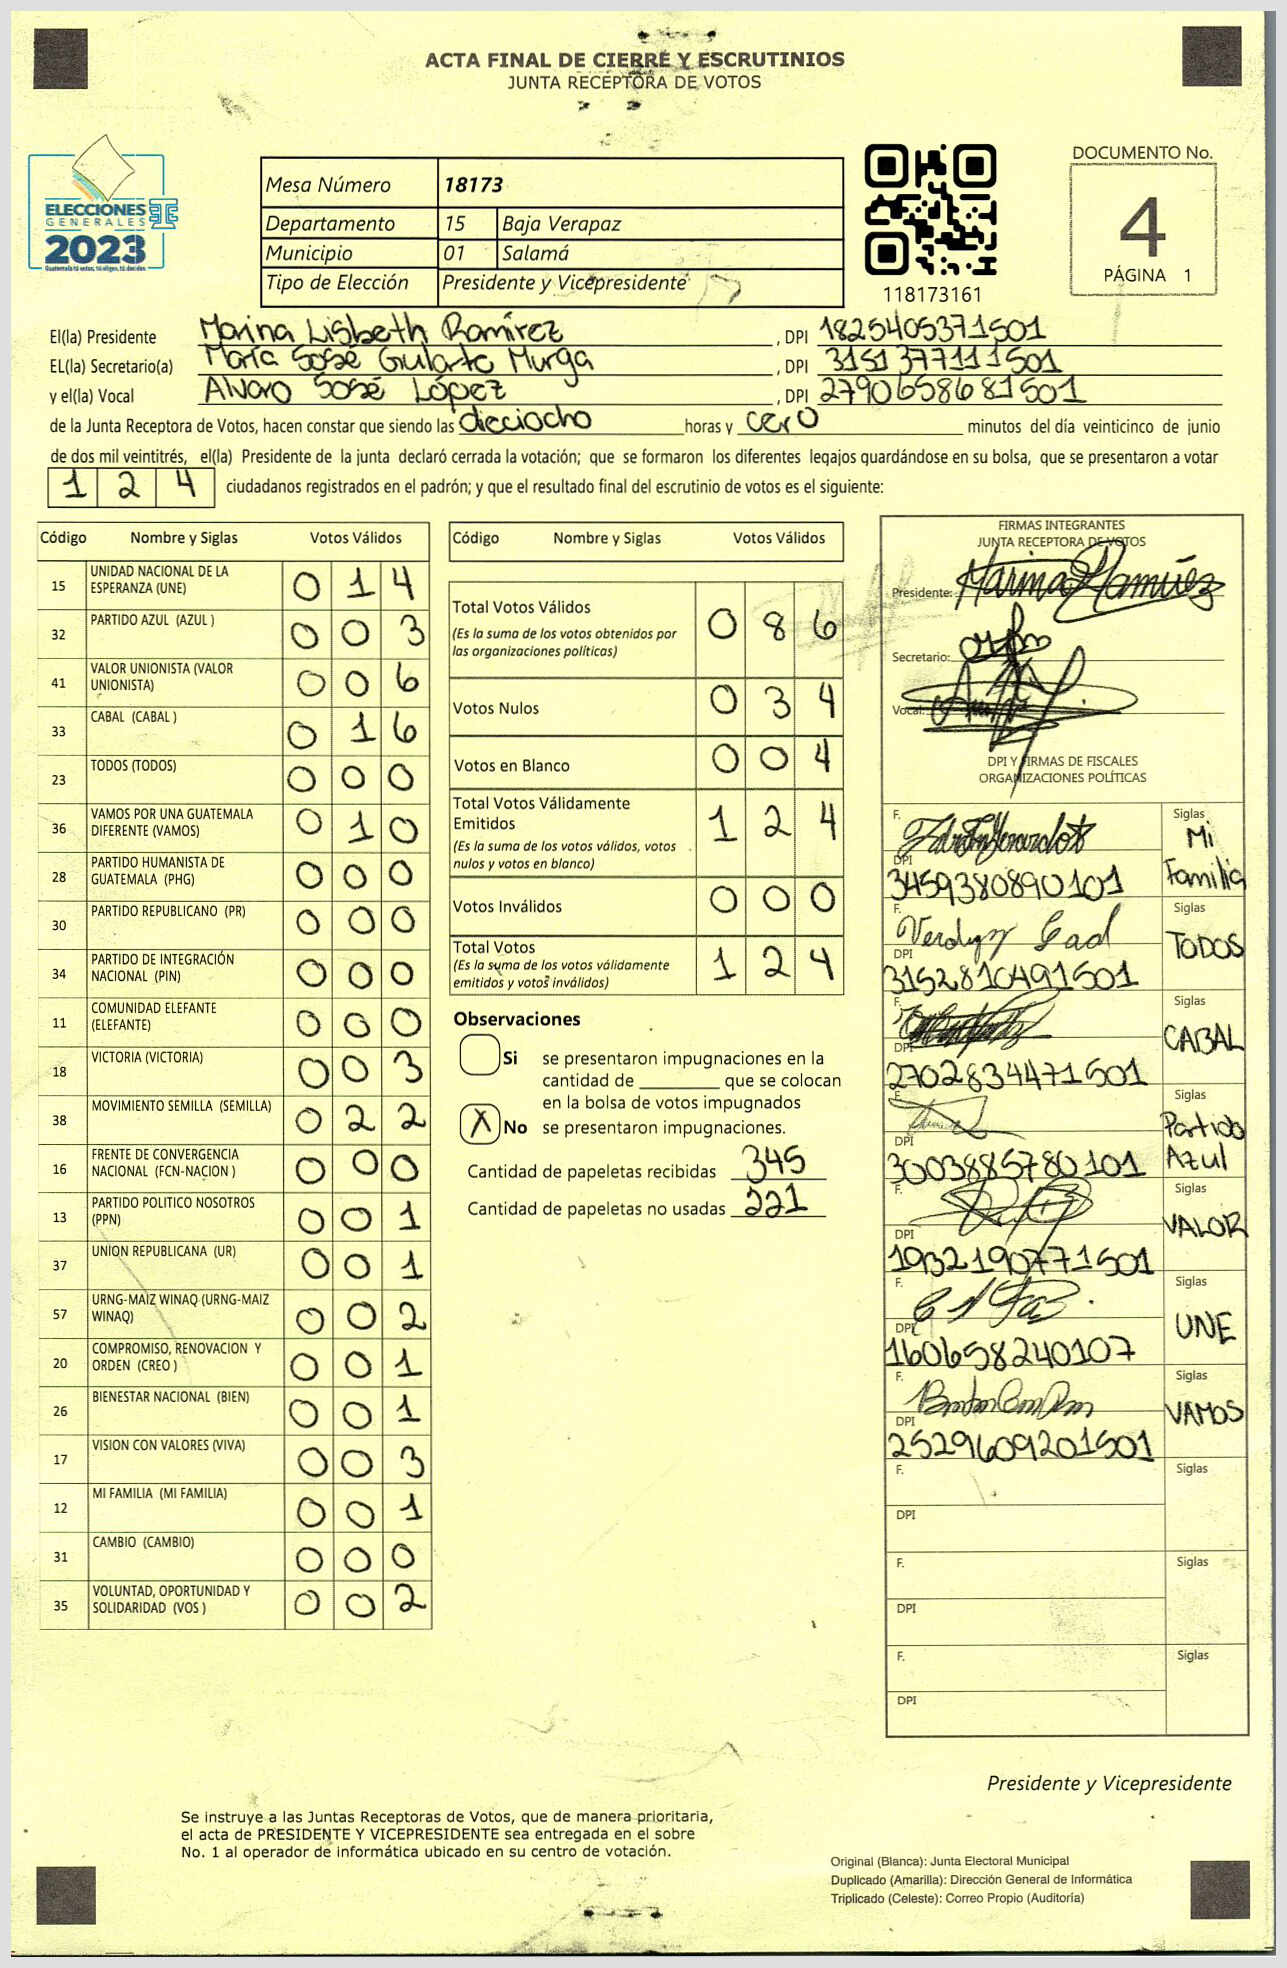 ACTA FINAL DE CIERRE Y ESCRUTINIOS
JUNTA RECEPTORA DE VOTOS
ELECCIONES
GENERALES
2023
Guatemala tú votas, tú eliges, tú decides
Mesa Número 18173
Departamento 15 Baja Verapaz
Municipio 01 Salamá
Tipo de Elección Presidente y Vicepresidente
118173161
DOCUMENTO No.
4
PÁGINA 1
El(la) Presidente Marina Lisbeth Ramírez , DPI 1825405371501
EL(la) Secretario(a) María José Giularte Murga , DPI 3151377111501
y el(la) Vocal Alvaro José López , DPI 2790658681501
de la Junta Receptora de Votos, hacen constar que siendo las dieciocho horas y cero minutos del día veinticinco de junio
de dos mil veintitrés, el(la) Presidente de la junta declaró cerrada la votación; que se formaron los diferentes legajos guardándose en su bolsa, que se presentaron a votar
1 2 4 ciudadanos registrados en el padrón; y que el resultado final del escrutinio de votos es el siguiente:
Código Nombre y Siglas Votos Válidos
15 UNIDAD NACIONAL DE LA ESPERANZA (UNE) 0 1 4
32 PARTIDO AZUL (AZUL ) 0 0 3
41 VALOR UNIONISTA (VALOR UNIONISTA) 0 0 6
33 CABAL (CABAL ) 0 1 6
23 TODOS (TODOS) 0 0 0
36 VAMOS POR UNA GUATEMALA DIFERENTE (VAMOS) 0 1 0
28 PARTIDO HUMANISTA DE GUATEMALA (PHG) 0 0 0
30 PARTIDO REPUBLICANO (PR) 0 0 0
34 PARTIDO DE INTEGRACIÓN NACIONAL (PIN) 0 0 0
11 COMUNIDAD ELEFANTE (ELEFANTE) 0 0 0
18 VICTORIA (VICTORIA) 0 0 3
38 MOVIMIENTO SEMILLA (SEMILLA) 0 2 2
16 FRENTE DE CONVERGENCIA NACIONAL (FCN-NACION ) 0 0 0
13 PARTIDO POLITICO NOSOTROS (PPN) 0 0 1
37 UNION REPUBLICANA (UR) 0 0 1
57 URNG-MAIZ WINAQ (URNG-MAIZ WINAQ) 0 0 2
20 COMPROMISO, RENOVACION Y ORDEN (CREO ) 0 0 1
26 BIENESTAR NACIONAL (BIEN) 0 0 1
17 VISION CON VALORES (VIVA) 0 0 3
12 MI FAMILIA (MI FAMILIA) 0 0 1
31 CAMBIO (CAMBIO) 0 0 0
35 VOLUNTAD, OPORTUNIDAD Y SOLIDARIDAD (VOS ) 0 0 2
Código Nombre y Siglas Votos Válidos
Total Votos Válidos 0 8 6
(Es la suma de los votos obtenidos por
las organizaciones políticas)
Votos Nulos 0 3 4
Votos en Blanco 0 0 4
Total Votos Válidamente
Emitidos 1 2 4
(Es la suma de los votos válidos, votos
nulos y votos en blanco)
Votos Inválidos 0 0 0
Total Votos 1 2 4
(Es la suma de los votos válidamente
emitidos y votos inválidos)
Observaciones
Si se presentaron impugnaciones en la
cantidad de ________ que se colocan
en la bolsa de votos impugnados
X No se presentaron impugnaciones.
Cantidad de papeletas recibidas 345
Cantidad de papeletas no usadas 221
FIRMAS INTEGRANTES
JUNTA RECEPTORA DE VOTOS
Presidente: Marina Ramírez
Secretario:
Vocal:
DPI Y FIRMAS DE FISCALES
ORGANIZACIONES POLÍTICAS
F. Siglas Mi Familia
DPI 3459380890101
F. Siglas TODOS
DPI 3152810491501
F. Siglas CABAL
DPI 2702834471501
F. Siglas Partido Azul
DPI 3003885780101
F. Siglas VALOR
DPI 1932190771501
F. Siglas UNE
DPI 160658240107
F. Siglas VAMOS
DPI 2529609201501
F. Siglas
DPI
F. Siglas
DPI
F. Siglas
DPI
Presidente y Vicepresidente
Se instruye a las Juntas Receptoras de Votos, que de manera prioritaria,
el acta de PRESIDENTE Y VICEPRESIDENTE sea entregada en el sobre
No. 1 al operador de informática ubicado en su centro de votación.
Original (Blanca): Junta Electoral Municipal
Duplicado (Amarilla): Dirección General de Informática
Triplicado (Celeste): Correo Propio (Auditoría)